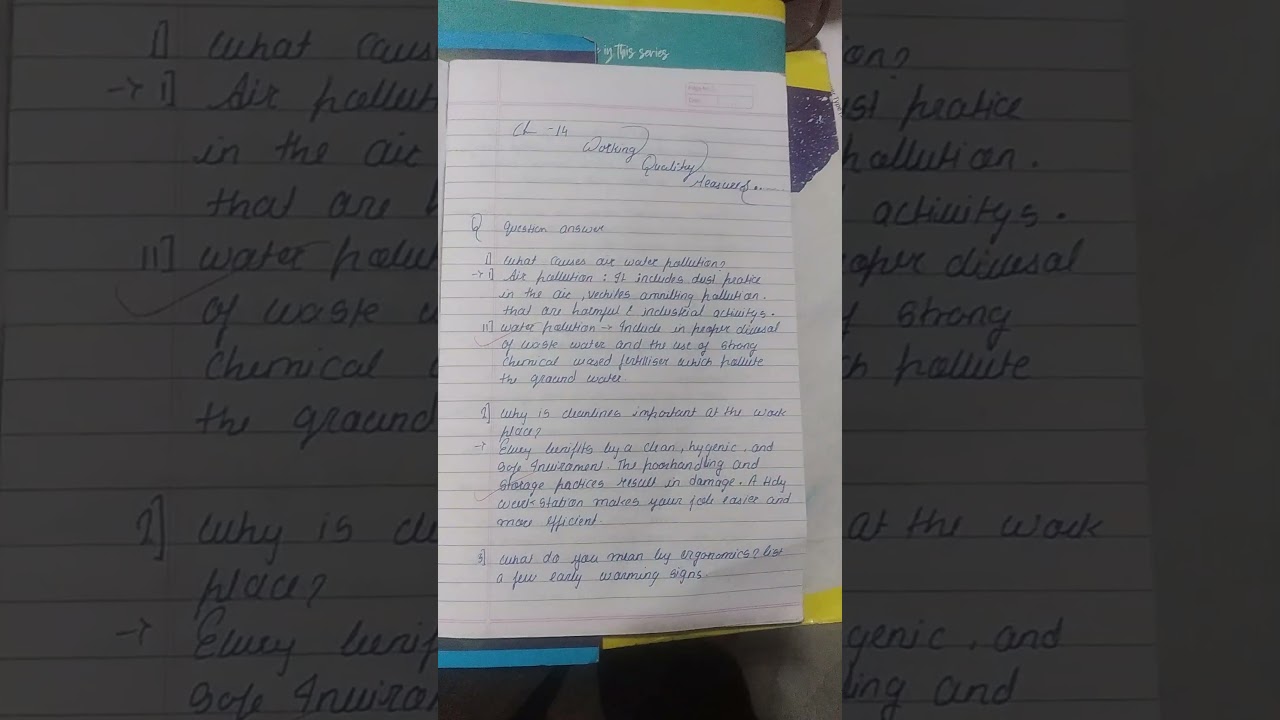 in This series
Ch - 14
Working
Quality
Measures......
Q question answer
1] what causes air water pollution?
→ i] Air pollution : It includes dust pratice
in the air, vechiles amniting pollution.
that are harmful & industrial activitys.
11] water polution → Include in proper divesal
of waste water and the use of strong
chemical wased fertiliser which pollute
the ground water
2] Why is cleanlines important at the work
place?
→ Every benifits by a clean, hygenic, and
Safe Invirament. The poorhandling and
storage pactices result in damage. A tidy
work station makes your job easier and
more efficient.
3] what do you mean by ergonomics? list
a few early warming signs.